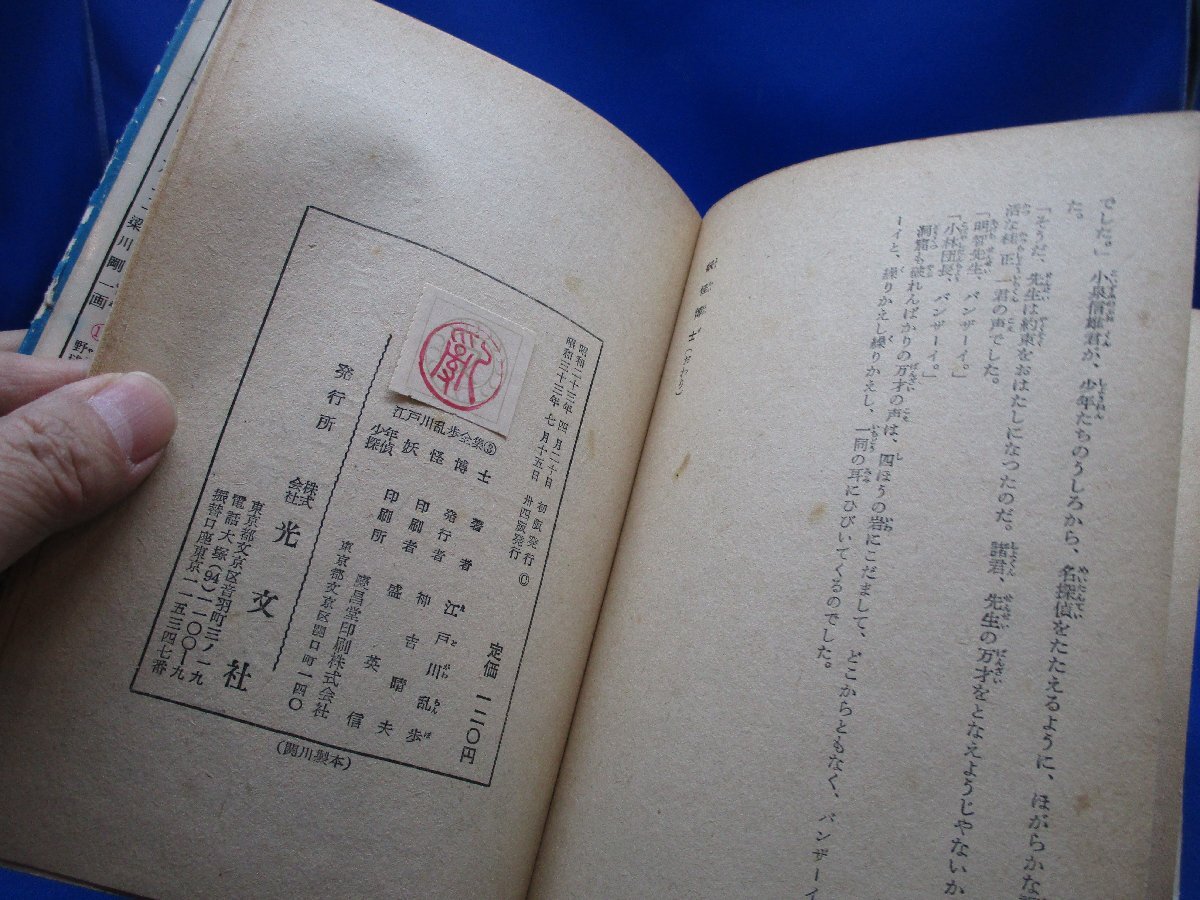 でした。」小泉信雄君が、少年たちのうしろから、名探偵をたたえるように、ほがらかな
た。
「そうだ、先生は約束をおはたしになつたのだ。諸君、先生の万才をとなえようじやないか
活な桂正一君の声でした。
「明智先生、バンザーイ。」
「小林団長、バンザーイ。」
洞窟も破れんばかりの万才の声は、四ほうの岩にこだまして、どこからともなく、バンザーイ
ーイと、繰りかえし繰りかえし、一同の耳にひびいてくるのでした。
妖怪博士(おわり)
昭和二十三年 四月二十日 初版発行
昭和三十三年 七月十五日 卅四版発行 ©
江戸川乱歩全集③
少年探偵 妖怪博士
定価 一二〇円
著者 江戸川乱歩
発行者 神吉晴夫
印刷者 盛英信
印刷所 慶昌堂印刷株式会社
東京都文京区関口町一四〇
発行所 株式会社 光文社
東京都文京区音羽町三ノ一九
電話大塚(94)一一〇〇―九
振替口座東京一一五三四七番
(関川製本)
梁川剛一画